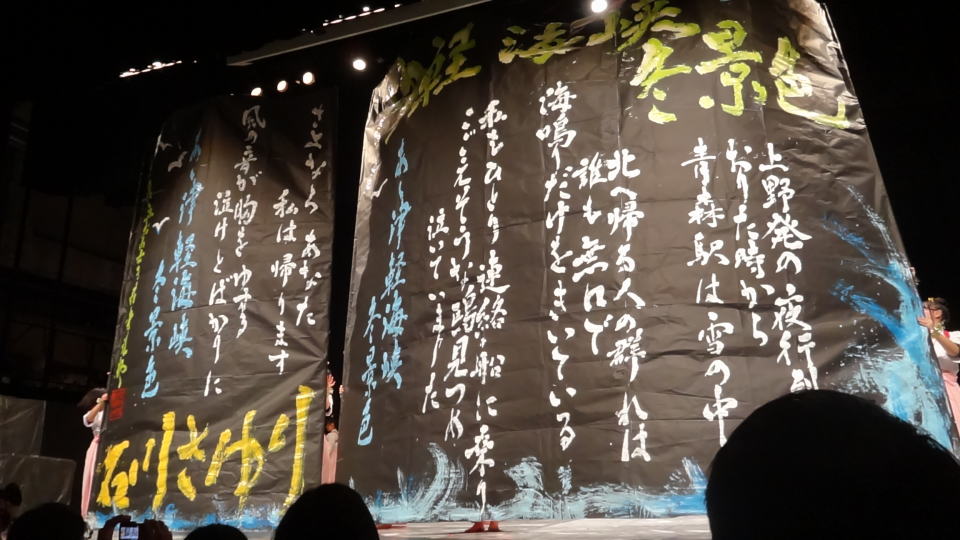 津軽海峡
冬景色
上野発の夜行列
おりた時から
青森駅は雪の中
北へ帰る人の群れは
誰も無口で
海鳴りだけをきいている
私もひとり連絡船に乗り
こごえそうな鴎見つめ
泣いていました
あゝ津軽海峡
冬景色
さよなら あなた
私は帰ります
風の音が胸をゆする
泣けとばかりに
あゝ津軽海峡
冬景色
石川さゆり